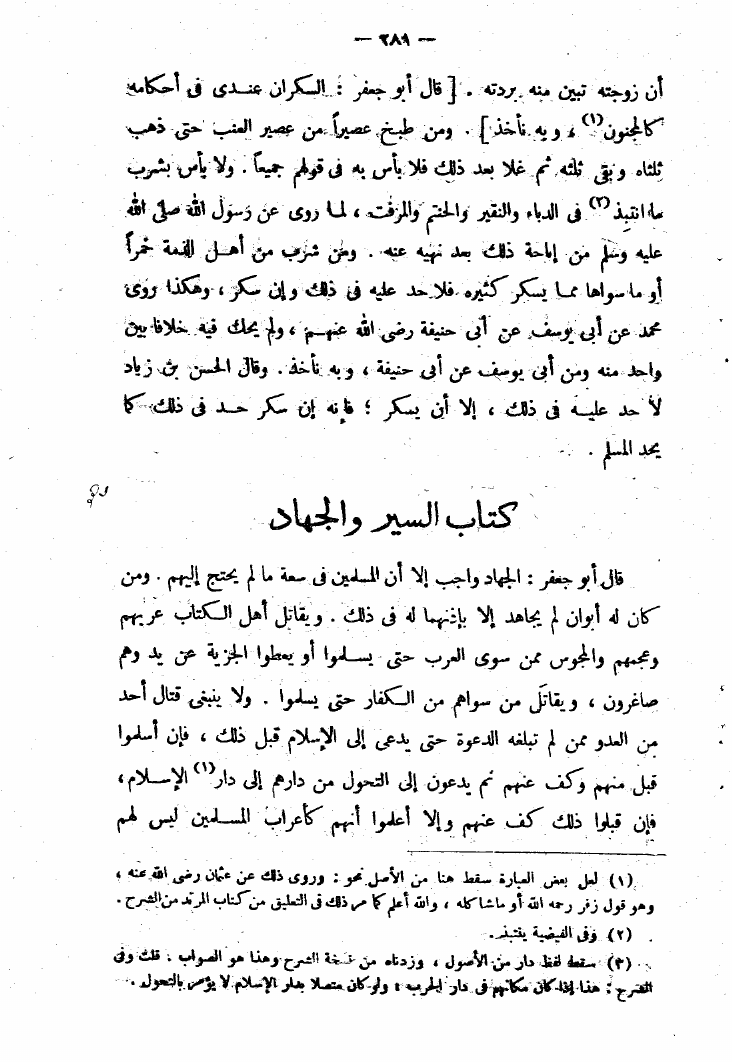 — ٢٨٩ —
أن زوجته تبين منه بردته . [ قال أبو جعفر : السكران عندى فى أحكامه
كالمجنون (١) ، وبه نأخذ ] . ومن طبخ عصيراً من عصير العنب حتى ذهب
ثلثاه وبقى ثلثه ثم غلا بعد ذلك فلا بأس به فى قولهم جميعاً . ولا بأس بشرب
ما انتبذ (٢) فى الدباء والنقير والحنتم والمزفت ، لما روى عن رسول الله صلى الله
عليه وسلم من إباحة ذلك بعد نهيه عنه . ومن شرب من أهل الذمة خمراً
أو ما سواها مما يسكر كثيره فلا حد عليه فى ذلك وإن سكر ، وهكذا روى
محمد عن أبى يوسف عن أبى حنيفة رضى الله عنهم ، ولم يحك فيه خلافا بين
واحد منه ومن أبى يوسف عن أبى حنيفة ، وبه نأخذ . وقال الحسن بن زياد
لا حد عليه فى ذلك ، إلا أن يسكر ؛ فإنه إن سكر حد فى ذلك كما
يحد المسلم .
كتاب السير والجهاد
قال أبو جعفر : الجهاد واجب إلا أن المسلمين فى سعة ما لم يحتج إليهم . ومن
كان له أبوان لم يجاهد إلا بإذنهما له فى ذلك . ويقاتل أهل الكتاب عربهم
وعجمهم والمجوس ممن سوى العرب حتى يسلموا أو يعطوا الجزية عن يد وهم
صاغرون ، ويقاتل من سواهم من الكفار حتى يسلموا . ولا ينبغى قتال أحد
من العدو ممن لم تبلغه الدعوة حتى يدعى إلى الإسلام قبل ذلك ، فإن أسلموا
قبل منهم وكف عنهم ثم يدعون إلى التحول من دارهم إلى دار (١) الإسلام ،
فإن قبلوا ذلك كف عنهم وإلا أعلموا أنهم كأعراب المسلمين ليس لهم
(١) لعل بعض العبارة سقط هنا من الأصل نحو : وروى ذلك عن عثمان رضى الله عنه ،
وهو قول زفر رحمه الله أو ما شاكله ، والله أعلم كما مر ذلك فى التعليق من كتاب المرتد من الشرح .
(٢) وفى الفيضية يقتبذ .
(٣) سقط لفظ دار من الأصول ، وزدناه من نسخة الشرح وهذا هو الصواب ، قلت وفى
الشرح : هذا إذا كان مكانهم فى دار الحرب ، ولو كان متصلا بدار الإسلام لا يؤمر بالتحول .